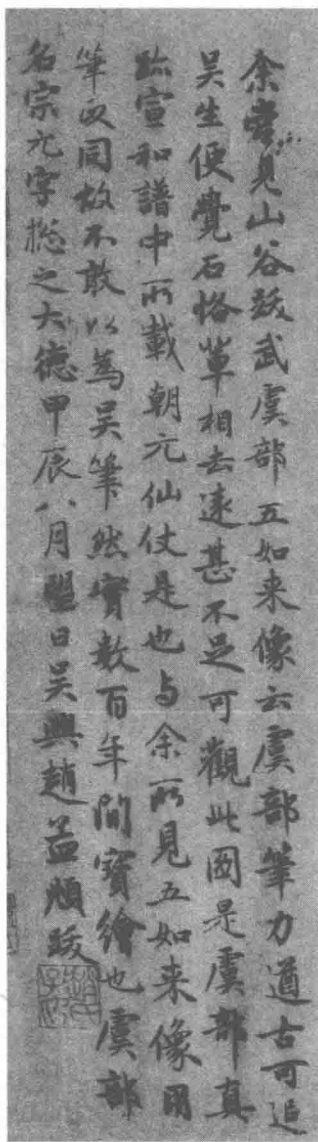 余嘗見山谷跋武虞部五如來像云虞部筆力遒古可追
吳生便覺石恪輩相去遠甚不足可觀此圖是虞部真
跡宣和譜中所載朝元仙仗是也与余所見五如来像用
筆政同故不敢以為吳筆然實數百年間寶繪也虞部
名宗元字總之大德甲辰八月望日吳興趙孟頫跋
趙氏子昂